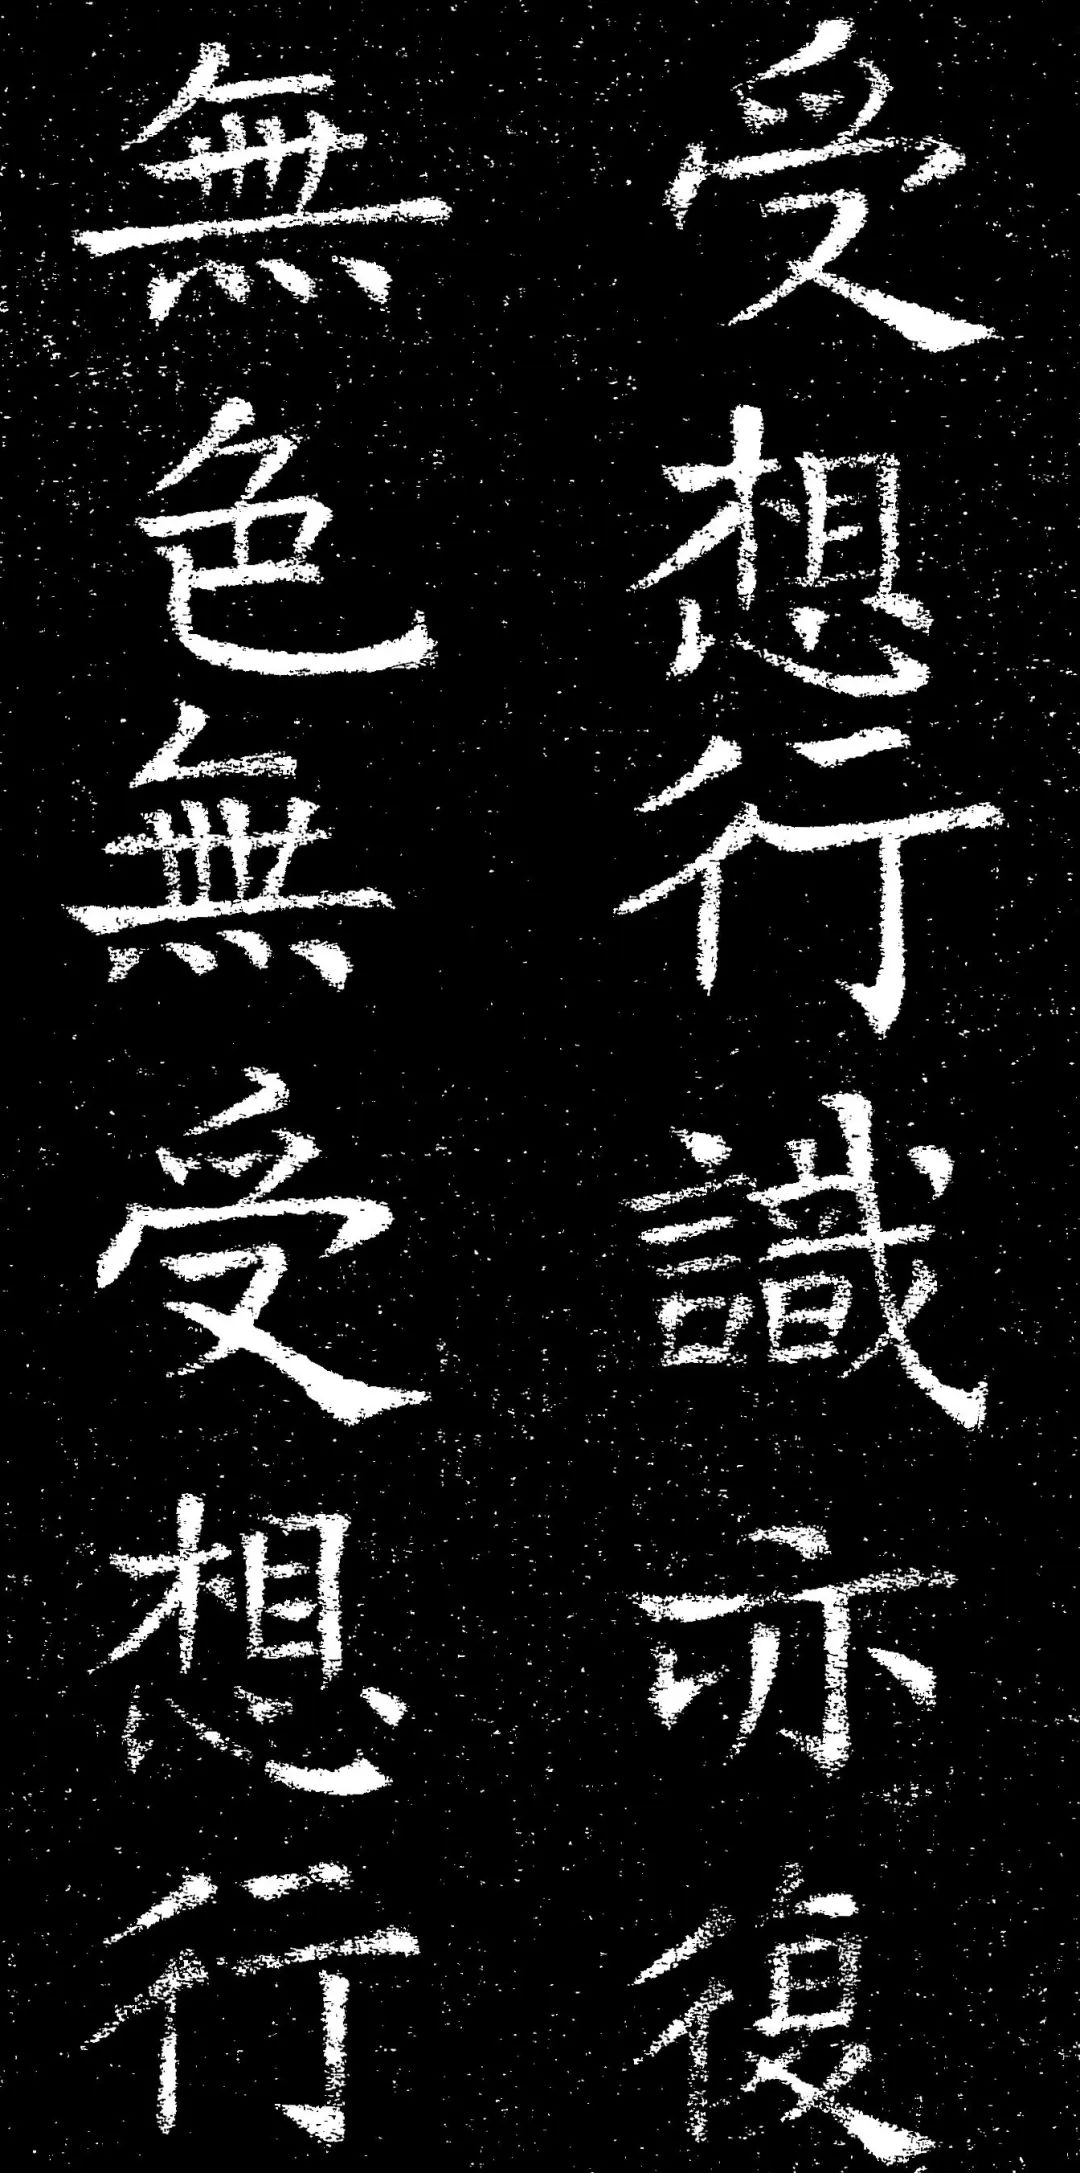 受想行識亦復
無色無受想行